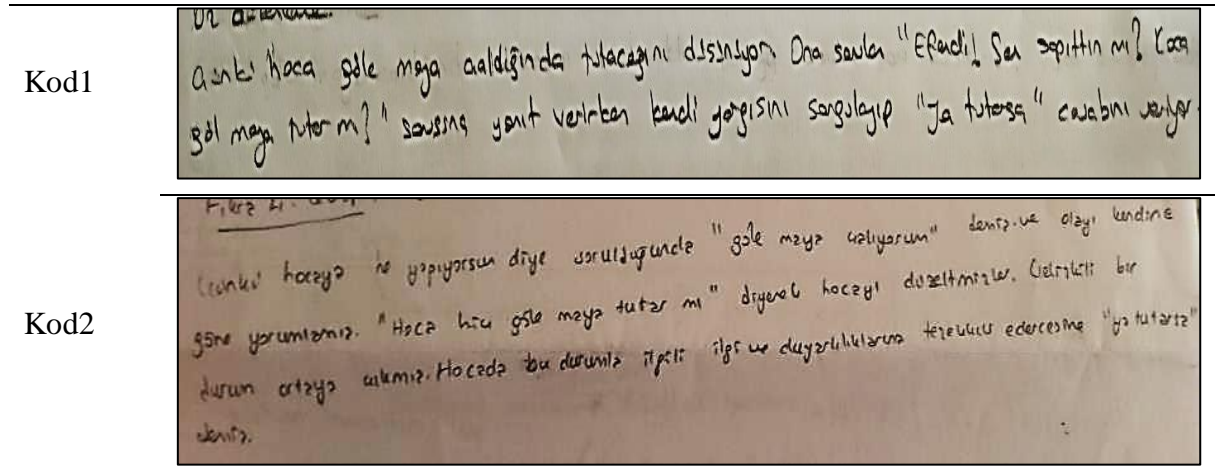 Kod1
Çünkü hoca göle maya çaldığında tutacağını düşünüyor. Ona sorulan "Efendi! Sen sapıttın mı? Koca
göl maya tutar mı?" sorusuna yanıt verirken kendi yargısını sorgulayıp "Ya tutarsa" cevabını veriyor.
Kod2
Çünkü hocaya ne yapıyorsun diye sorulduğunda "göle maya çalıyorum" demiş ve olayı kendine
göre yorumlamış. "Hoca hiç göle maya tutar mı" diyerek hocayı düzeltmişler. Çelişkili bir
durum ortaya çıkmış. Hocada bu durumla ilgili ilgi ve duyarlılıklarına teşekkür edercesine "ya tutarsa"
demiş.